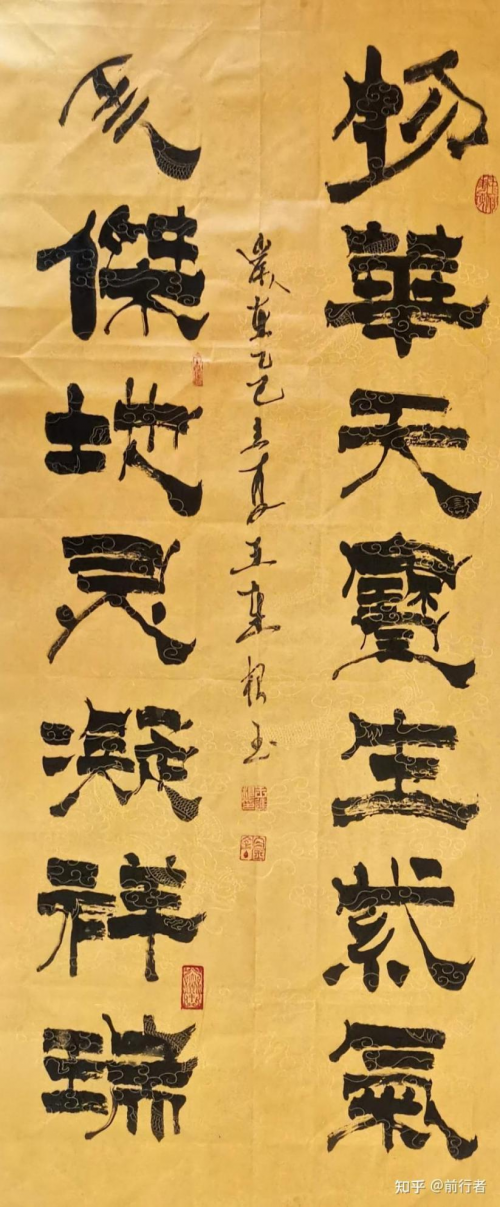 物華天寶生紫氣
人傑地灵凝祥瑞
歲在乙巳之夏王
知乎 @前行者